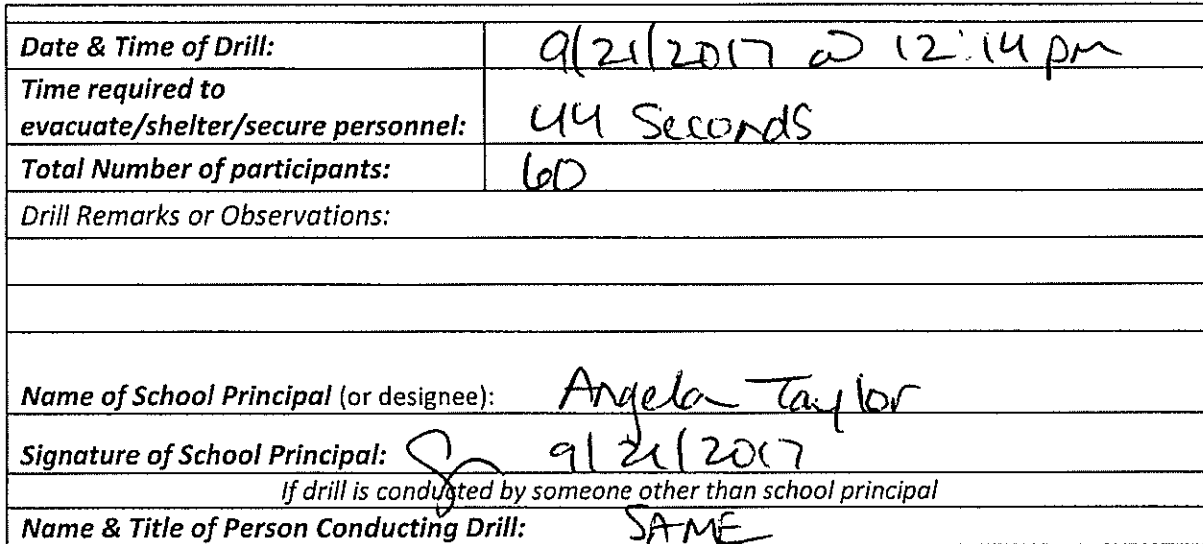 Date & Time of Drill: 9/21/2017 @ 12:14 pm
Time required to
evacuate/shelter/secure personnel: 44 Seconds
Total Number of participants: 60
Drill Remarks or Observations:
Name of School Principal (or designee): Angela Taylor
Signature of School Principal: 9/21/2017
If drill is conducted by someone other than school principal
Name & Title of Person Conducting Drill: SAME